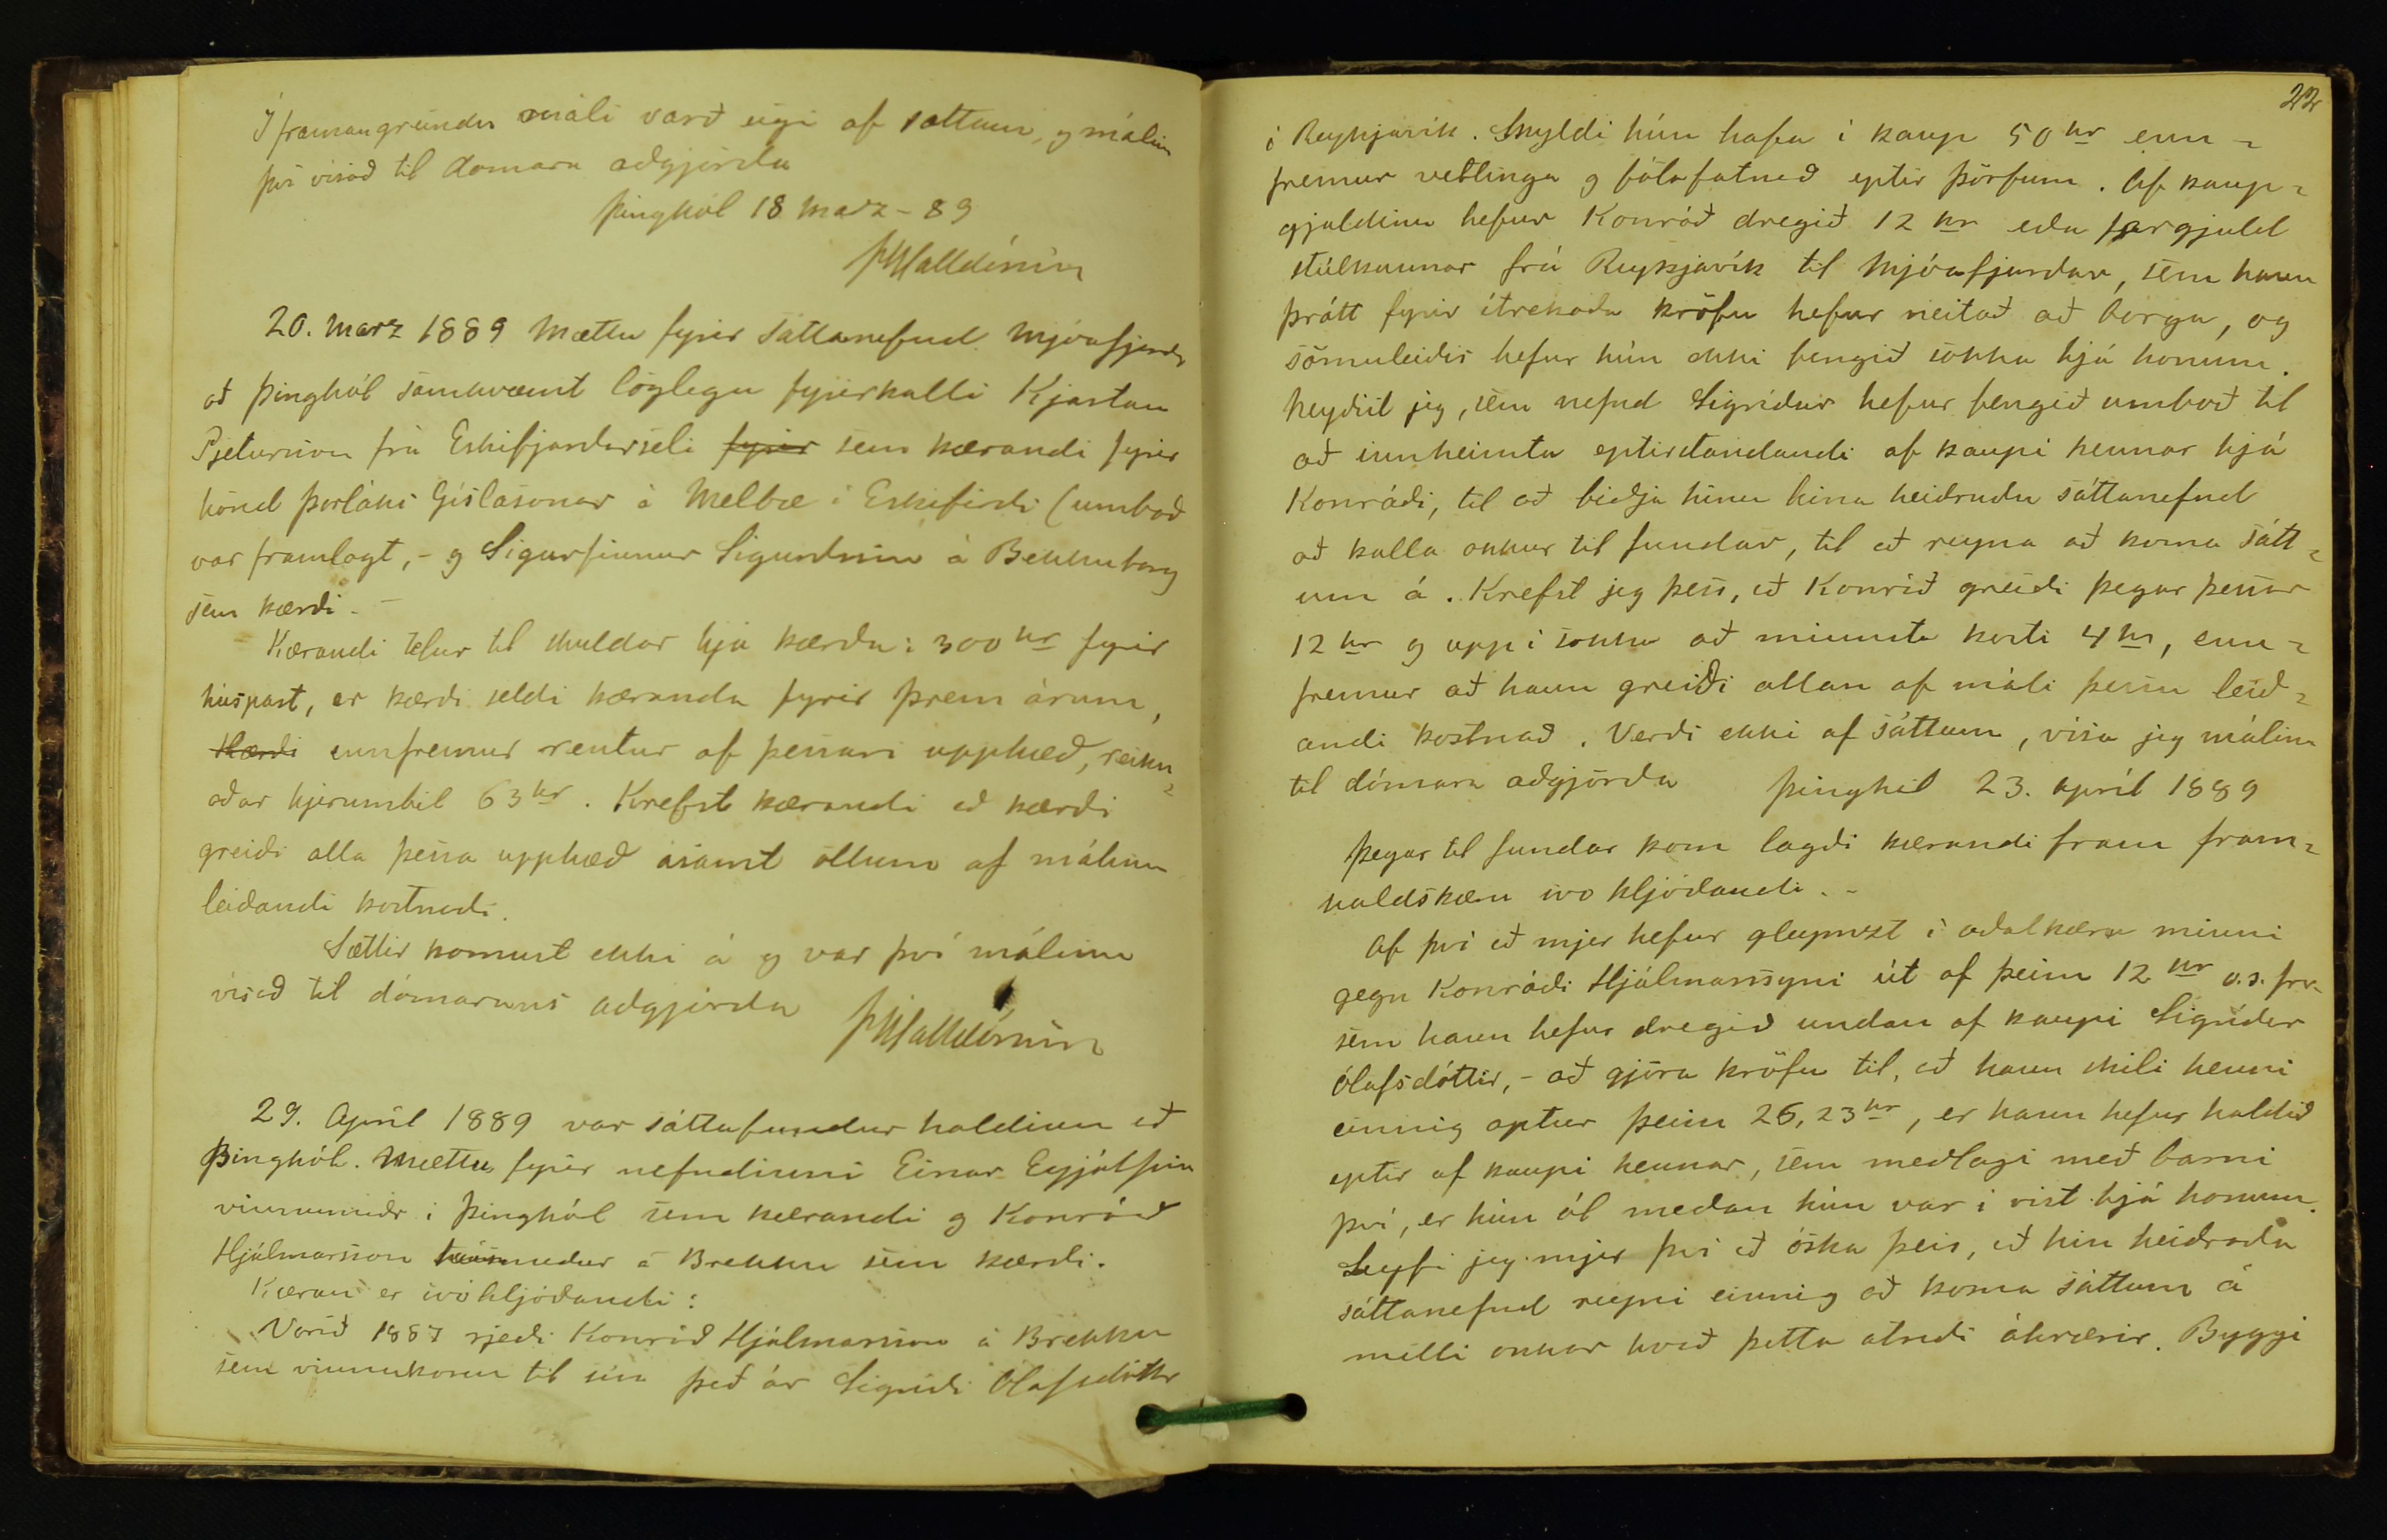 Í framangreindu máli varð eigi af sættum, og málinu
því vísað til domara aðgjörða
Þinghól 18 Marz - 89
ÞHalldórsson
20. Marz 1889 Mættu fyrir Sáttanefnd Mjóafjarðr
að Þinghól samkvæmt löglegu fyrirkalli Kjartan
Pjetursson frá Eskifjarðarseli fyrir sem kærandi fyrir
hönd Þorláks Gíslasonar á Melbæ í Eskifirði (umboð
var framlagt, - og Sigurfinnur Sigurðsson á Brekkuborg
sem kærði. -
Kærandi telur til skuldar hjá kærðu: 300 kr fyrir
húspart, er kærði seldi kæranda fyrir þrem árum,
Kærði ennfremur rentur af þessari upphæð, reikn=
aðar hjerumbil 63 kr. Krefst kærandi að kærði
greiði alla þessa upphæð ásamt öllum af málinu
leiðandi kostnaði.
Sættir komust ekki á og var því málinu
vísað til dómarans aðgjörða ÞHalldórsson
29. Apríl 1889 var sáttafundur haldinn að
Þinghól. Mættu fyrir nefndinni Einar Eyjólfsson
vinnumaðr í Þinghól sem kærandi og Konráð
Hjálmarsson á Brekku sem kærði.
Kæran er svo hljóðandi:
Vorið 1887 rjeði Konráð Hjálmarsson á Brekku
sem vinnukonu til sín það ár Sigríði Ólafsdóttr
22
í Reykjavík. Skyldi hún hafa í kaup 50 kr enn=
fremur vetlinga og fótafatnað eptir þörfum. Af kaup=
gjaldinu hefur Konráð dregið 12 kr eða fargjald
stúlkunnar frá Reykjavík til Mjóafjarðar, sem hann
þrátt fyrir ítrekaða kröfu hefur neitað að borga, og
sömuleiðis hefur hún ekki fengið sokka hjá honum.
Neyðist jeg, sem nefnd Sigríður hefur fengið umboð til
að innheimta eptirstandandi af kaupi hennar hjá
Konráði, til að biðja hina heiðruðu sáttanefnd
að kalla okkur til fundar, til að reyna að koma sátt=
um á. Krefst jeg þess, að Konráð greiði þegar þessar
12 kr og upp í sokka að minnsta kosti 4 kr, enn=
fremur að hann greiði allan af máli þessu leið=
andi kostnað. Verði ekki af sáttum, vísa jeg málinu
til dómara aðgjörða Þinghól 23. apríl 1889
Þegar til fundar kom lagði kærandi fram fram=
haldskæru svo hljóðandi. -
Af því að mjer hefur gleymst í aðalkæru minni
gegn Konráði Hjálmarssyni út af þeim 12 kr o.s.frv.
sem hann hefur dregið undan af kaupi Sigríðar
Ólafsdóttir, - að gjöra kröfu til, að hann skili henni
einnig aptur þeim 26,23 kr, er hann hefur haldið
eptir af kaupi hennar, sem meðlagi með barni
því, er hún ól meðan hún var í vist hjá honum.
Leyfi jeg mjer því að óska þess, að hin heiðraða
sáttanefnd reyni einnig að koma sáttum á
milli okkar hvað þetta atriði áhrærir. Byggi